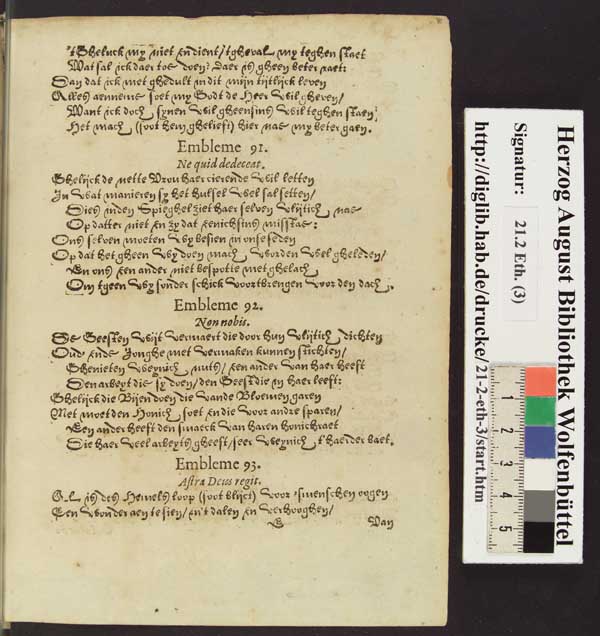 't Gheluck my niet en dient / tgheval my teghen staet
Wat sal ick daer toe doen? daer is gheen beter raet:
Dan dat ick met ghedult in dit mijn tijtlijck leven
Alles aenneme soet my Godt de Heer wil gheven /
Want ick doch synen wil gheensins wil teghen staen /
Het mach (soot hem ghelieft) hier nae my beter gaen.
Embleme 91.
Ne quid dedeceat.
Ghelijck de nette Vrou haer cierende wil letten
In wat manieren sy het hulsel wel sal setten /
Dies inden Spieghel ziet haer selven vlijtich nae
Op datter niet en zy dat eenichsins misstae:
Ons selven moeten wy besien in onse seden
Op dat het gheen wy doen mach worden wel gheleden /
En ons een ander niet bespotte met ghelach
Om tgeen wy sonder schick voortbrengen voor den dach.
Embleme 92.
Non nobis.
De Geesten wijt vermaert die door hun vlijtich dichten
Oud' ende Jonghe met vermaken kunnen stichten /
Ghenieten weynich nuts / een ander van haer heeft
Den arbeyt die sy doen / den Geest die in haer leeft:
Ghelijck die Bijen doen die vande Bloemen garen
Met moet den Honich soet en die voor andre sparen /
Een ander heeft den smaeck van haren honichraet
Die haer veel arbeyts gheeft / seer weynich t'haerder baet.
Embleme 93.
Astra Deus regit.
Al is des Hemels loop (soot blijct) voor 'smenschen oogen
Een wonder aen te sien / in't dalen en verhooghen /
Van
Herzog August Bibliothek Wolfenbüttel
Signatur: 21.2 Eth. (3)
http://diglib.hab.de/drucke/21-2-eth-3/start.htm
1
2
3
4
5